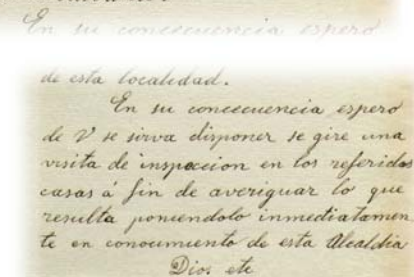 En su concecuencia espero
de esta localidad.
En su concecuencia espero
de V se sirva disponer se gire una
visita de inspeccion en los referidos
casas á fin de averiguar lo que
resulta poniendolo inmediatamen
te en conocimiento de esta Alcaldia
Dios etc